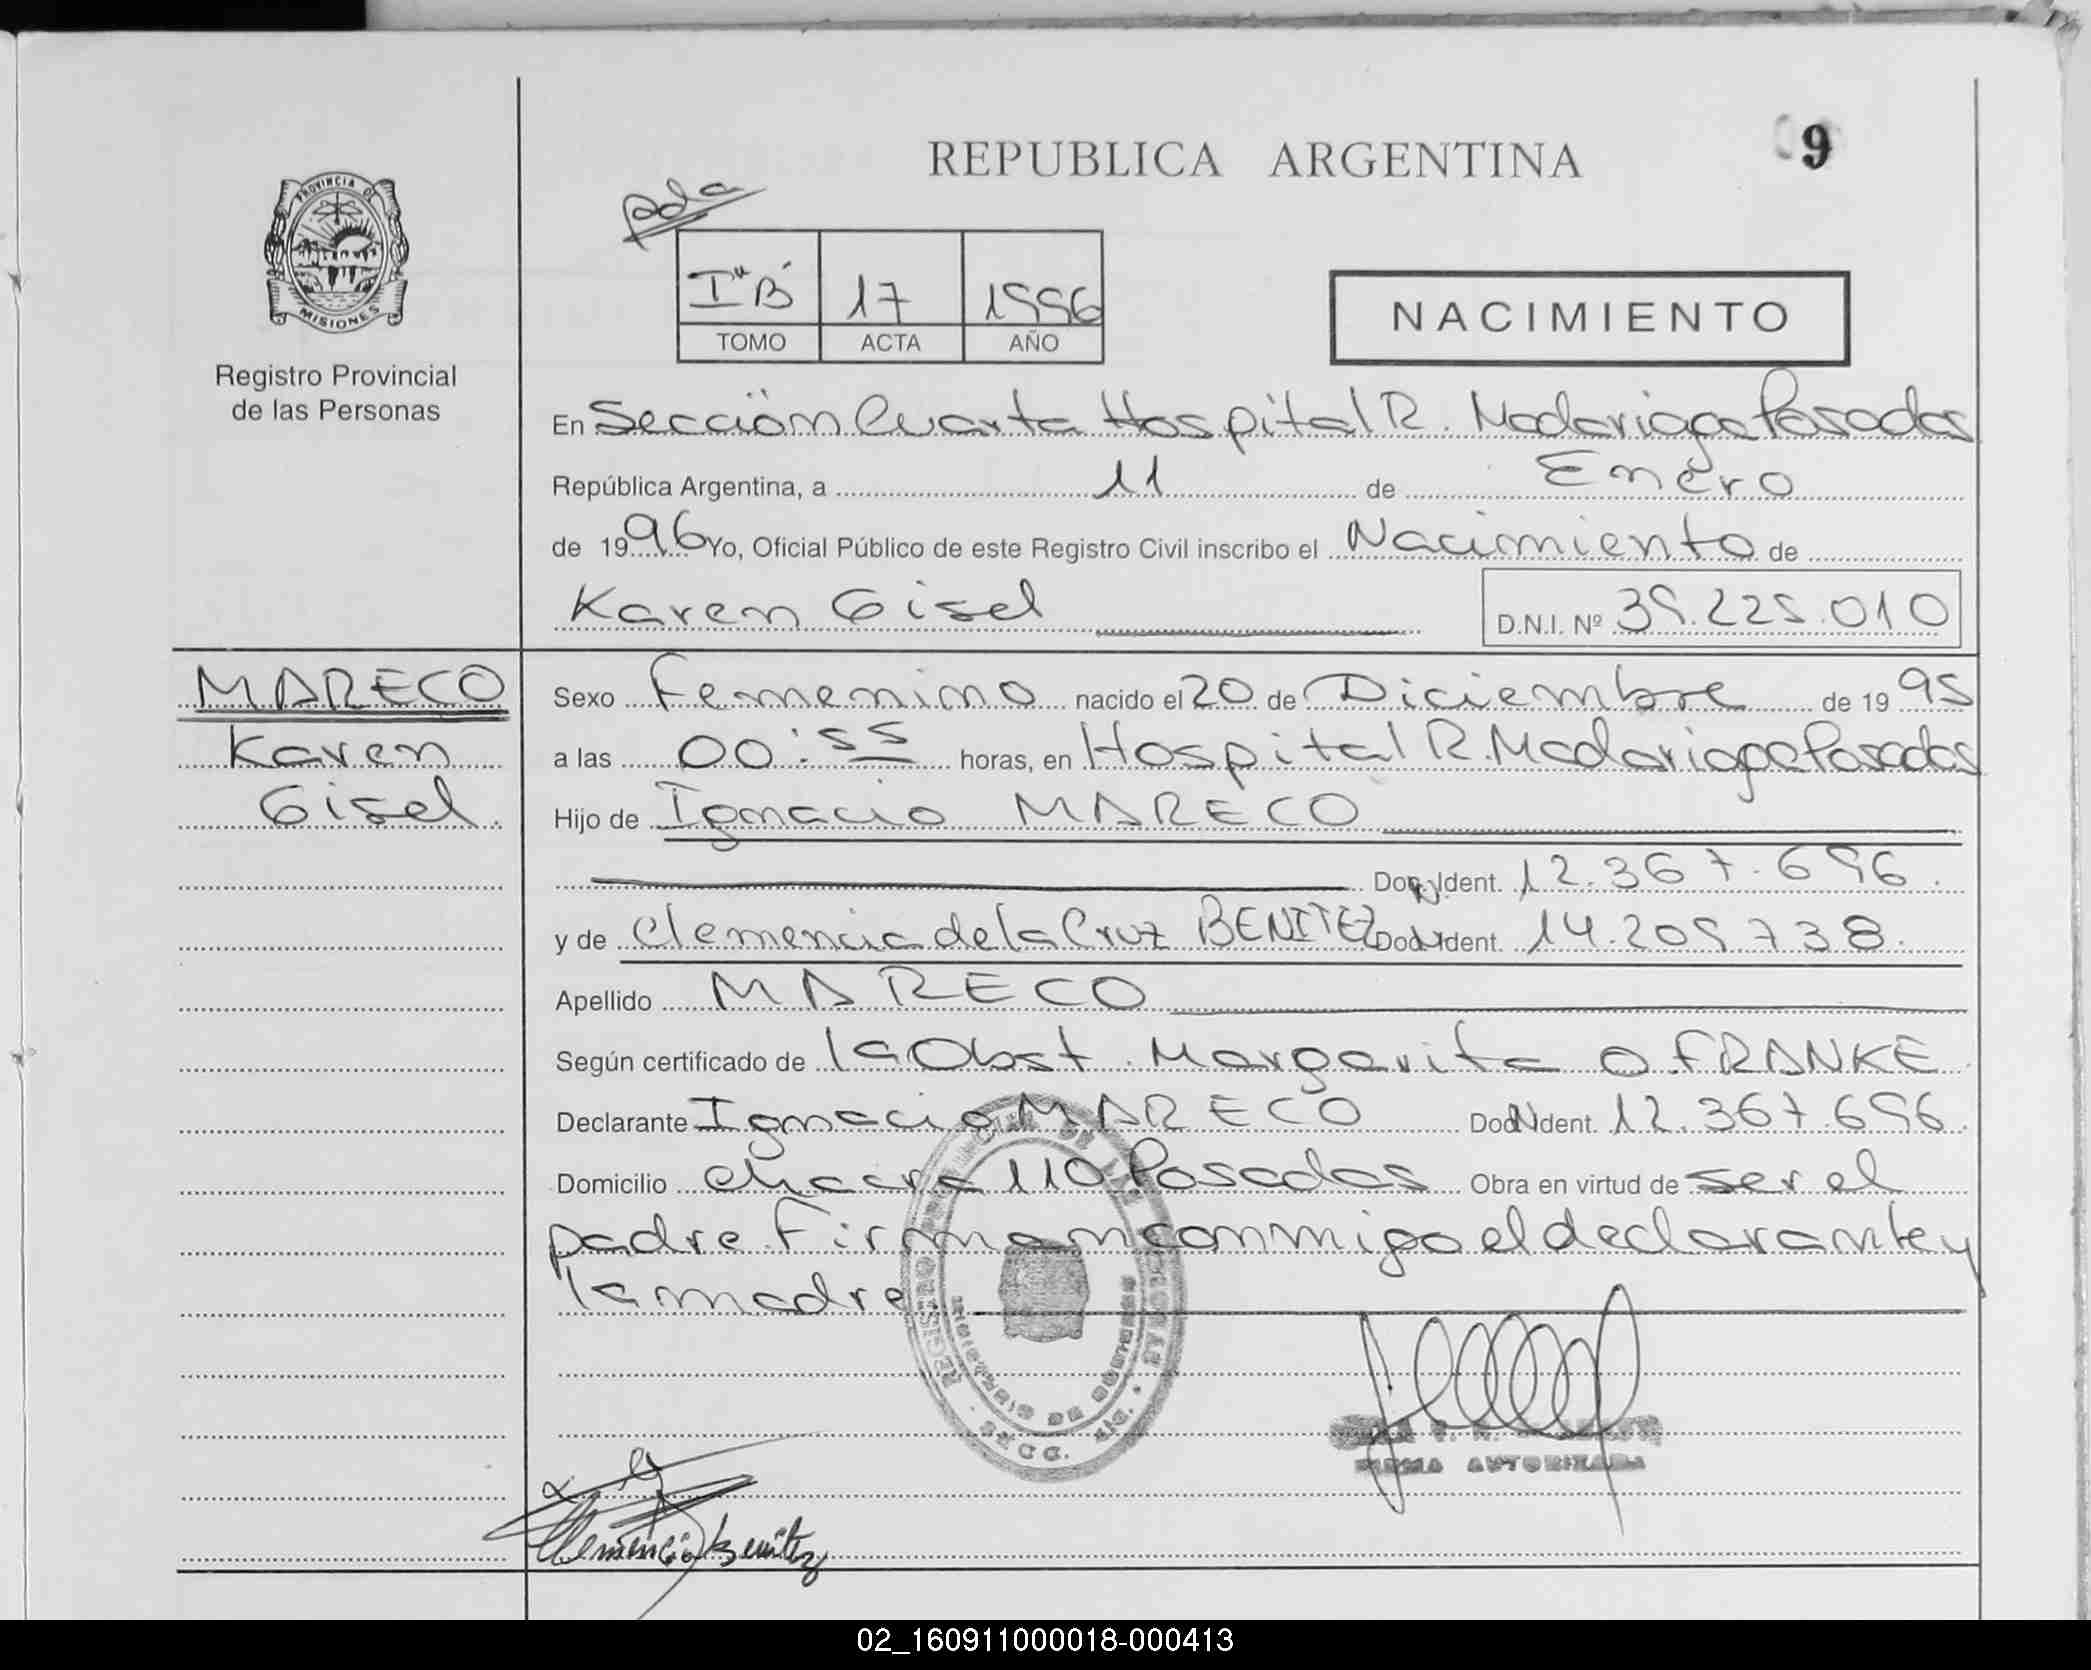 REPUBLICA ARGENTINA
9
pda
PROVINCIA DE
MISIONES
Registro Provincial
de las Personas
Iº"B" 17 1996
TOMO ACTA AÑO
NACIMIENTO
En Sección Cuarta Hospital R. Madariaga Posadas
República Argentina, a 11 de Enero
de 1996 Yo, Oficial Público de este Registro Civil inscribo el Nacimiento de
Karen Gisel
D.N.I. Nº 39.225.010
MARECO
Karen
Gisel
Sexo Femenino nacido el 20 de Diciembre de 1995
a las 00:55 horas, en Hospital R. Madariaga Posadas
Hijo de Ignacio MARECO
Doc. Ident. 12.367.696
y de Clemencia de la Cruz BENITEZ Doc. Ident. 14.209.738
Apellido MARECO
Según certificado de la Obst. Margarita O. FRANKE
Declarante Ignacio MARECO Doc. Ident. 12.367.696
Domicilio chacra 110 Posadas Obra en virtud de ser el
padre. Firman conmigo el declarante y
la madre
REGISTRO PROVINCIAL DE LAS PERSONAS
MINISTERIO DE GOBIERNO
FIRMA AUTORIZADA
Clemencia Benitez
02_160911000018-000413